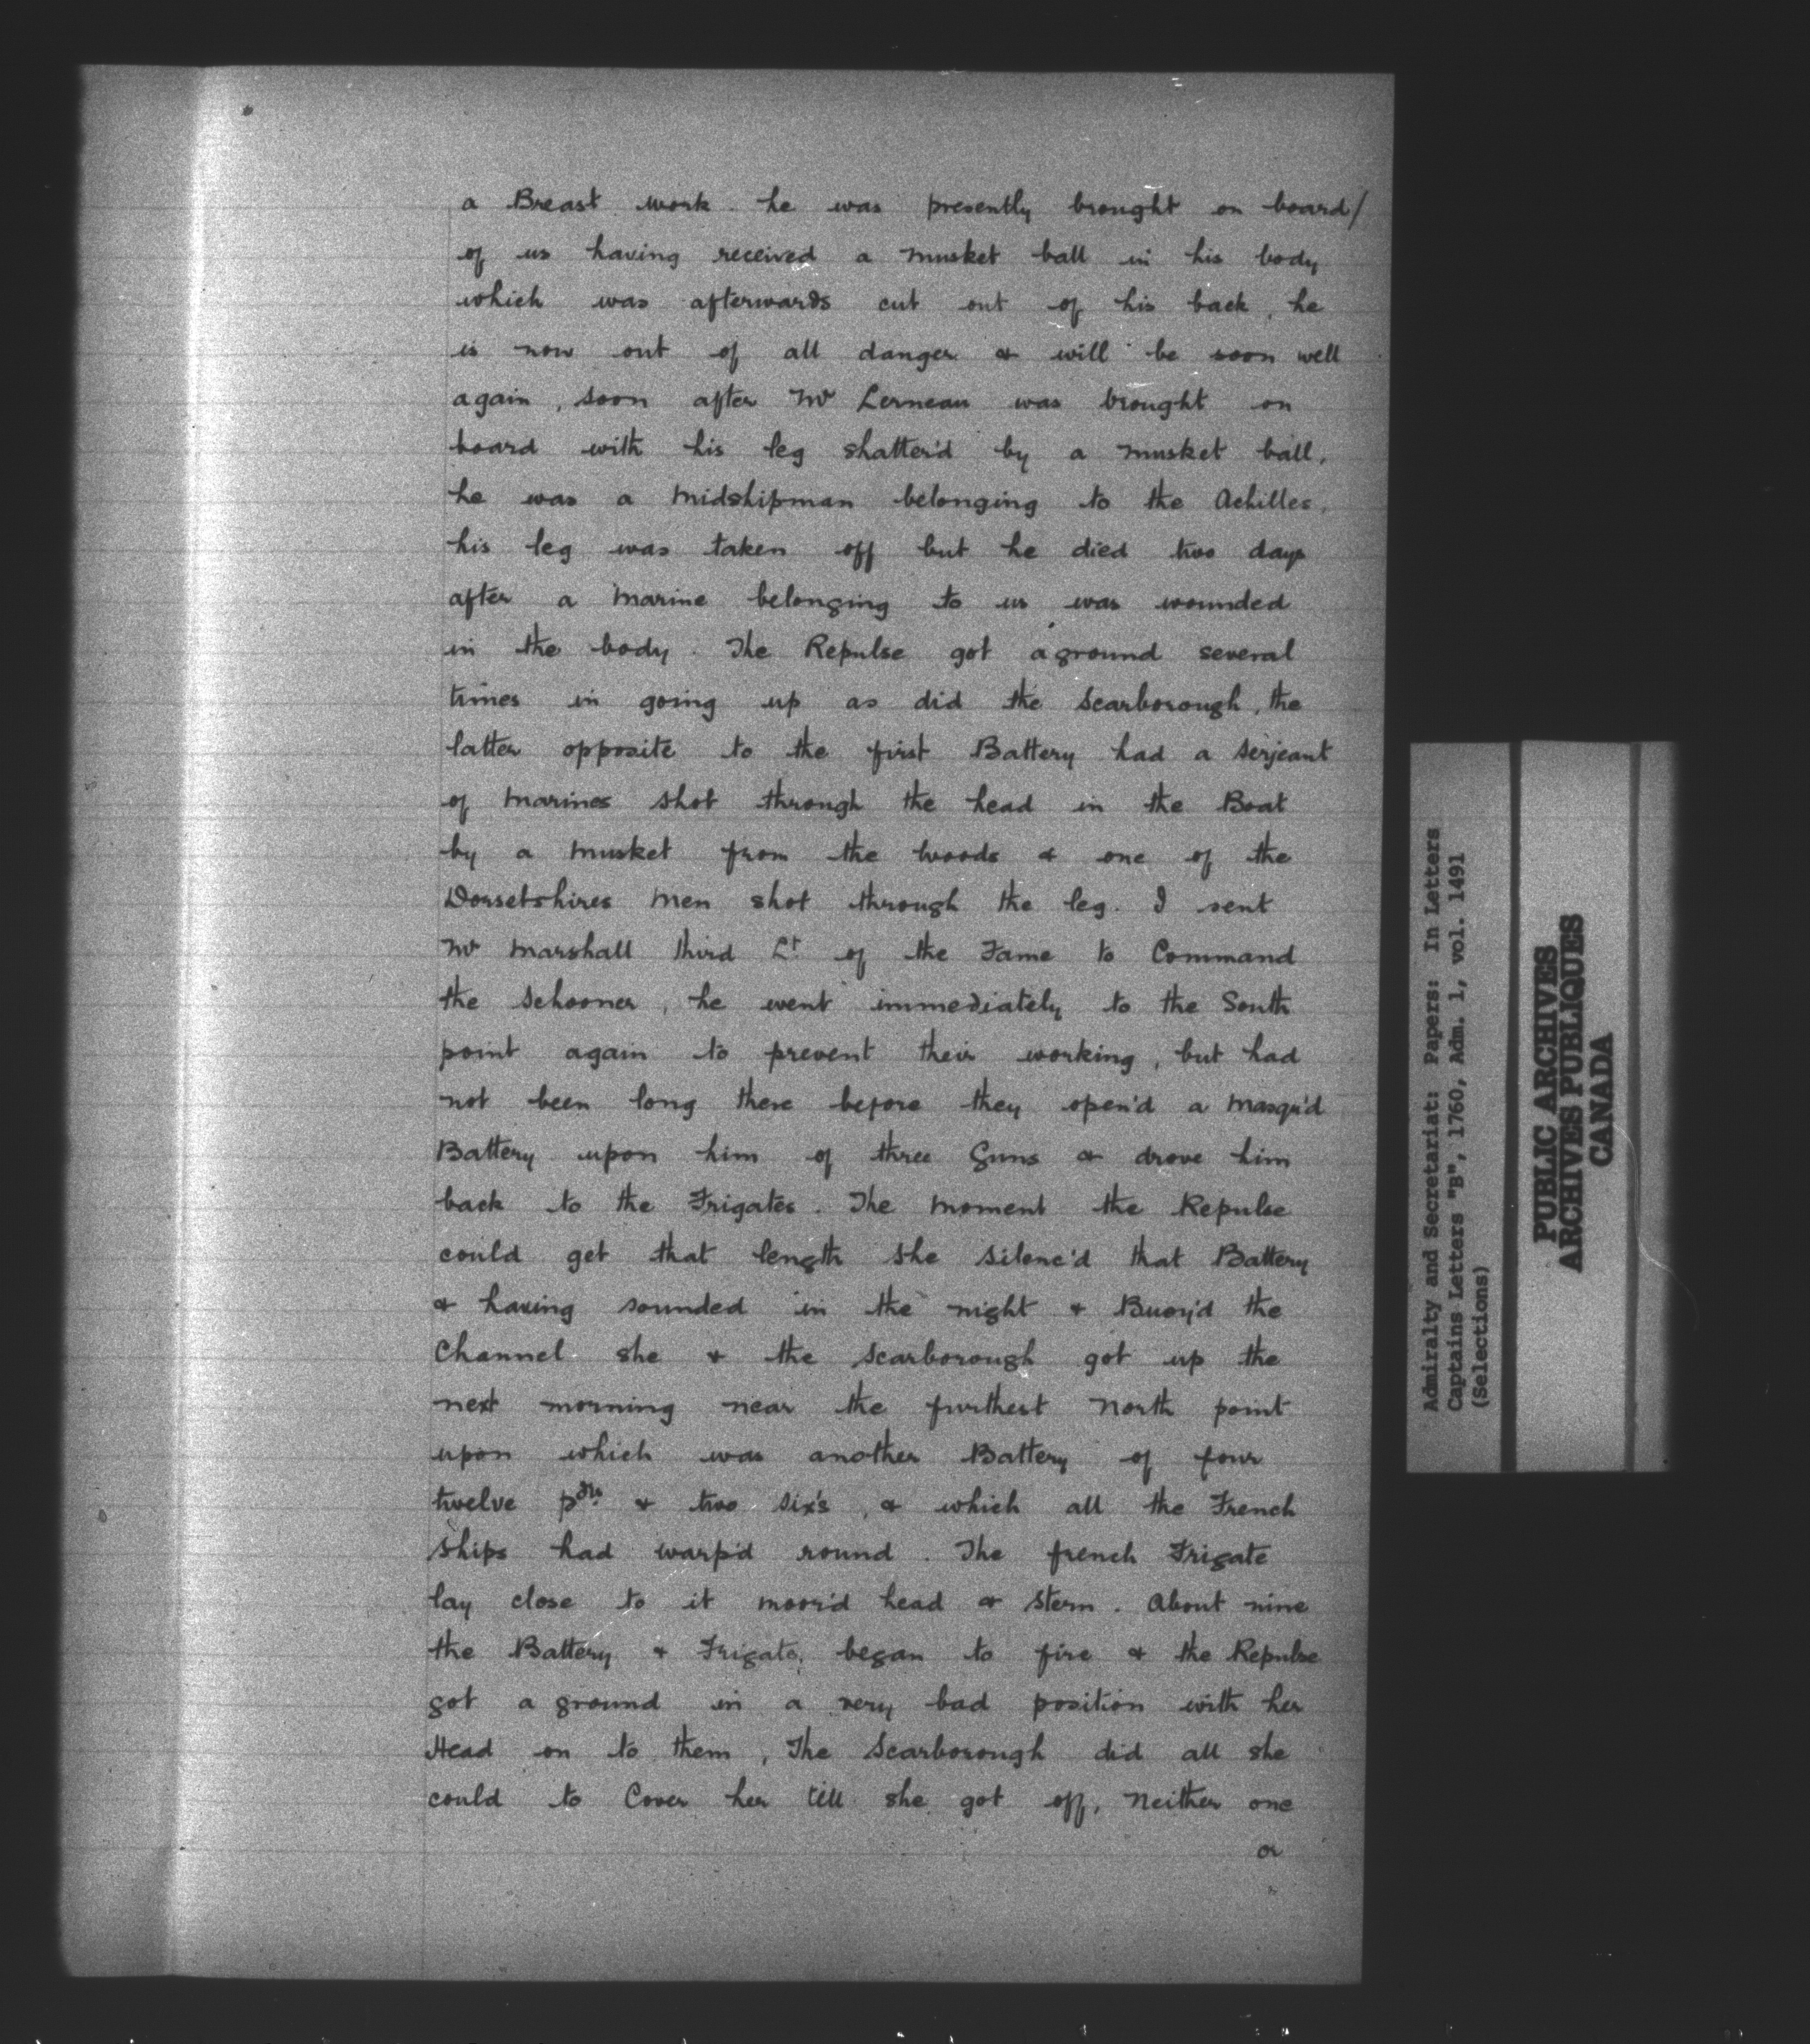 a Breast work he was presently brought on board/
of us having received a musket ball in his body
which was afterwards cut out of his back, he
is now out of all danger & will be soon well
again, soon after Mr Lerneau was brought on
board with his leg shatter'd by a musket ball,
he was a midshipman belonging to the Achilles,
his leg was taken off but he died two days
after a marine belonging to us was wounded
in the body. The Repulse got aground several
times in going up as did the Scarborough, the
latter opposite to the first Battery had a serjeant
of marines shot through the head in the Boat
by a musket from the woods & one of the
Dorsetshires men shot through the leg. I sent
Mr Marshall third Lt. of the Fame to Command
the Schooner, he went immediately to the South
point again to prevent their working, but had
not been long there before they open'd a masqu'd
Battery upon him of three Guns & drove him
back to the Frigates. The moment the Repulse
could get that length she silenc'd that Battery
& having sounded in the night & Buoy'd the
Channel she & the Scarborough got up the
next morning near the furthest North point
upon which was another Battery of four
twelve pdrs & two six's, & which all the French
ships had warp'd round. The french Frigate
lay close to it moor'd head & stern. About nine
the Battery & Frigate, began to fire & the Repulse
got a ground in a very bad position with her
Head on to them, The Scarborough did all she
could to Cover her till she got off, neither one
or
Admiralty and Secretariat: Papers: In Letters
Captains Letters "B", 1760, Adm. 1, vol. 1491
(Selections)
PUBLIC ARCHIVES
ARCHIVES PUBLIQUES
CANADA